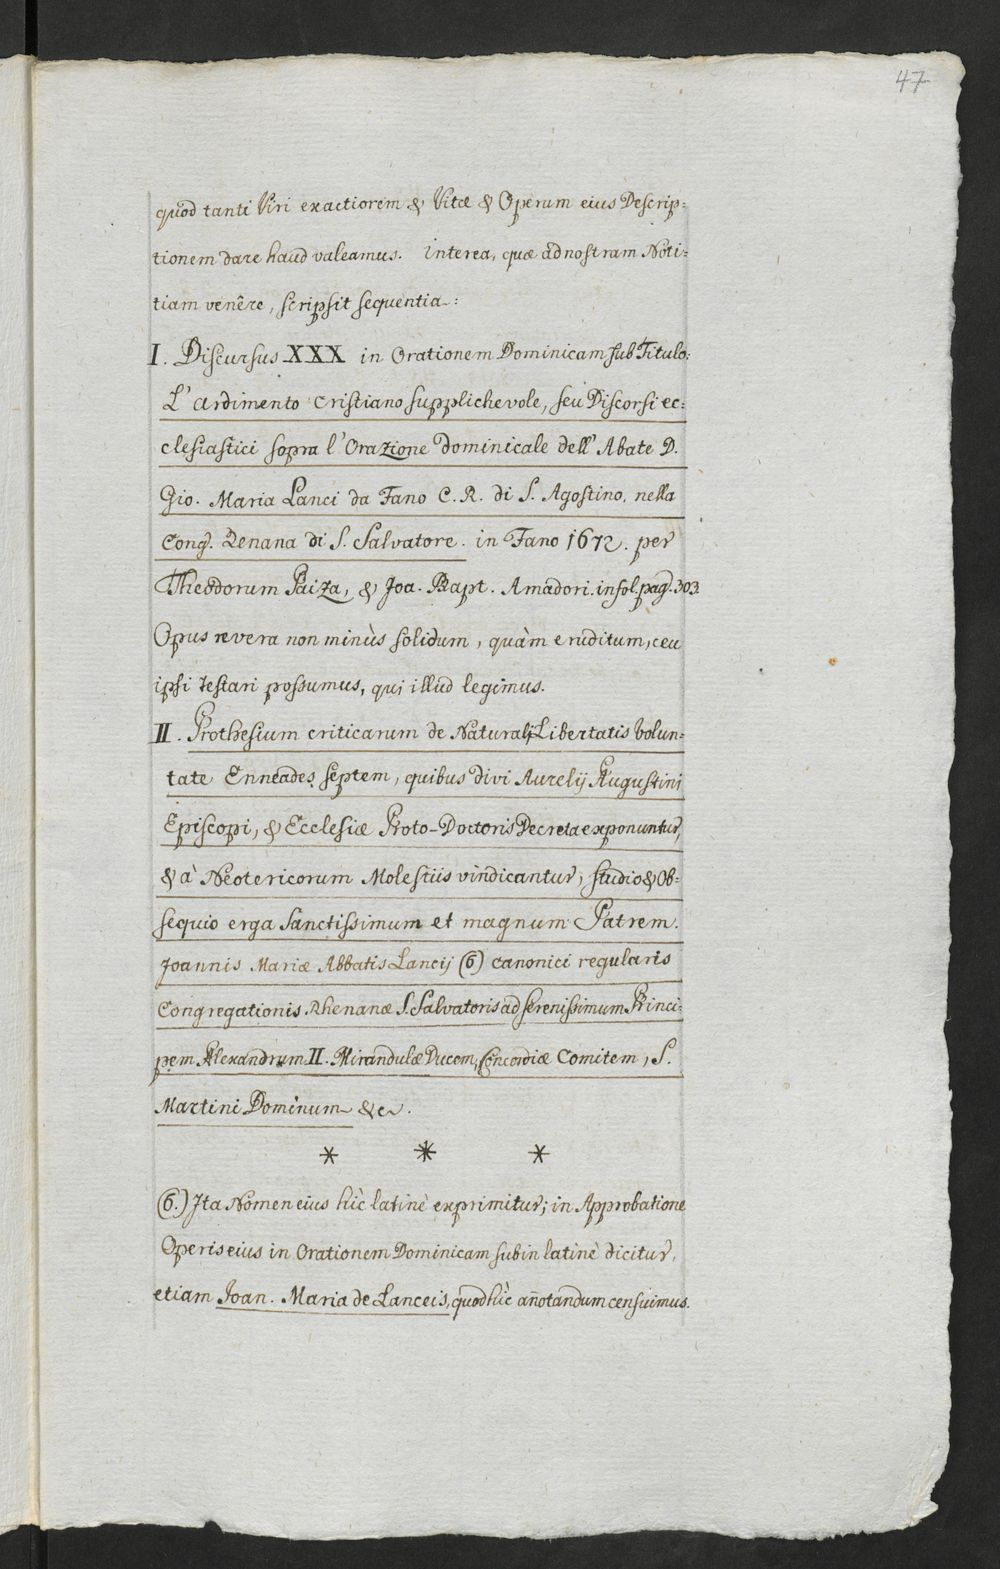 47
quod tanti Viri exactiorem & Vitæ & Operum eius Descrip=
tionem dare haud valeamus. Interea, quæ ad nostram Noti=
tiam venêre, scripsit sequentia:
I. Discursus XXX in Orationem Dominicam sub Titulo:
L'Ardimento Cristiano supplichevole, seu Discorsi ec=
clesiastici sopra l'Orazione Dominicale dell'Abate D.
Gio. Maria Lanci da Fano C. R. di S. Agostino, nella
Cong. Renana di S. Salvatore. in Fano 1672. per
Theodorum Paiza, & Joa. Bapt. Amadori. in fol. pag. 303.
Opus revera non minùs solidum, quàm eruditum, ceu
ipsi testari possumus, qui illud legimus.
II. Prothesium criticarum de Naturali Libertatis volun=
tate Enneades septem, quibus divi Aurelij Augustini
Episcopi, & Ecclesiæ Proto-Doctoris Decreta exponuntur,
& à Neotericorum Molestiis vindicantur, studio & Ob=
sequio erga Sanctissimum et magnum Patrem.
Joannis Mariæ Abbatis Lancij (6) canonici regularis
Congregationis Rhenanæ S. Salvatoris ad serenissimum Princi=
pem Alexandrum II. Mirandulæ Ducem, Concordiæ Comitem, S.
Martini Dominum &c.
* * *
(6.) Ita Nomen eius hîc latinè exprimitur; in Approbatione
Operis eius in Orationem Dominicam subin latinè dicitur,
etiam Joan. Maria de Lanceis, quod hîc añotandum censuimus.